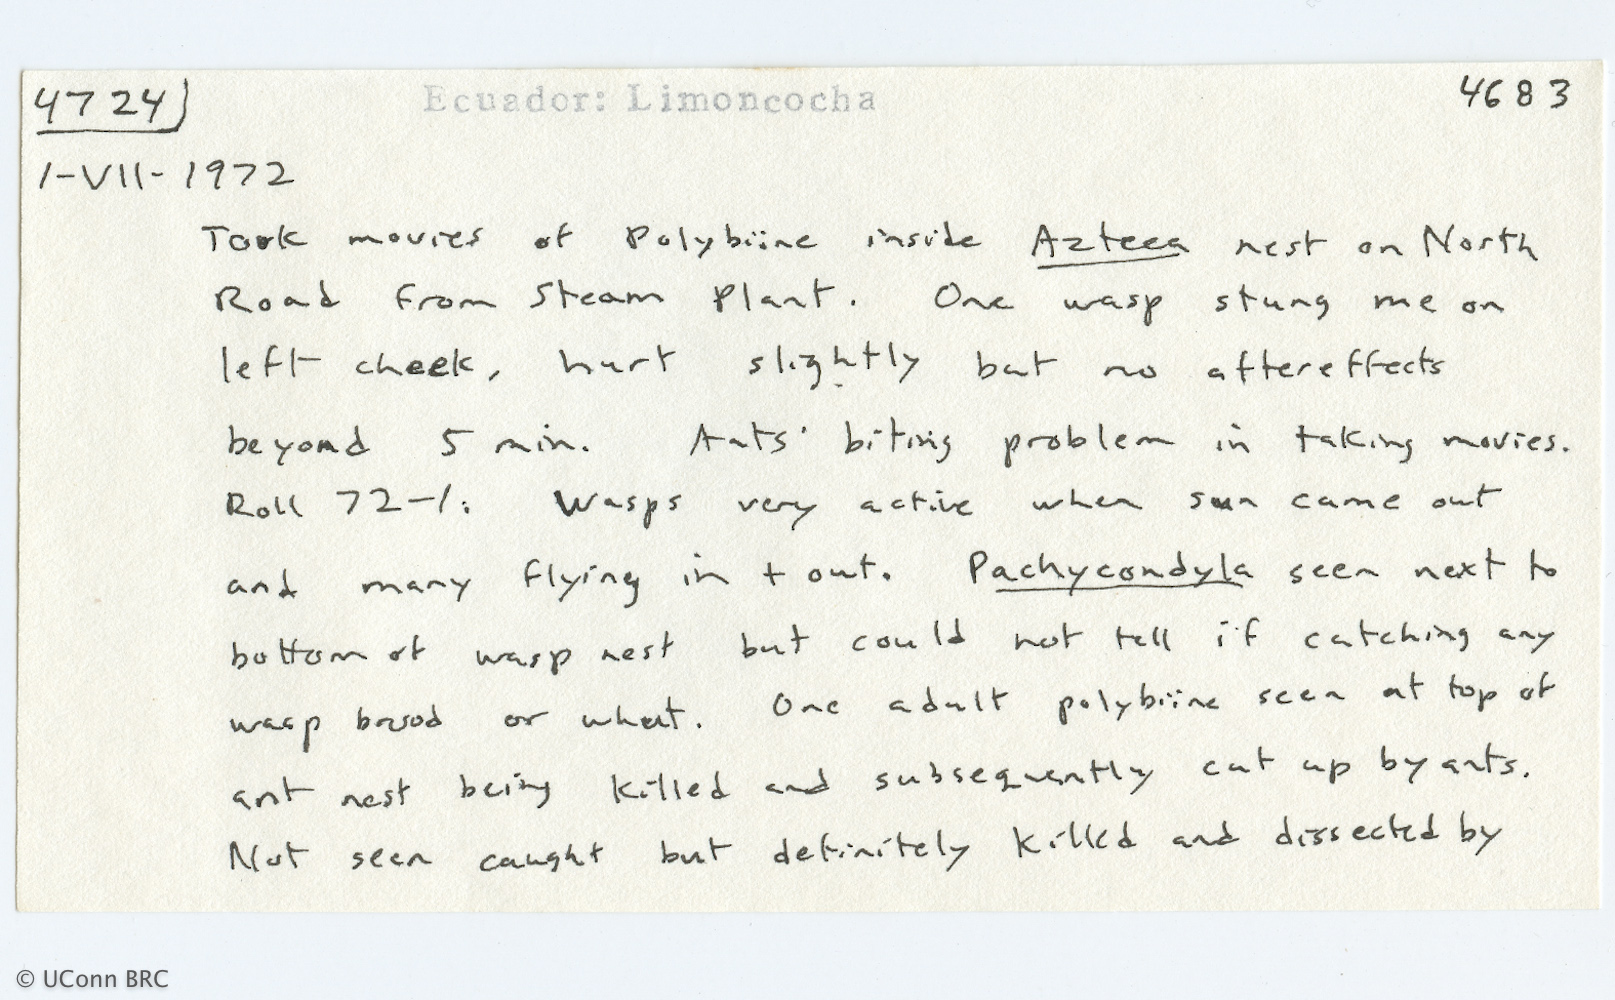 4724) Ecuador: Limoncocha 4683
1-VII-1972
Took movies of Polybiine inside Azteca nest on North
Road from Steam Plant. One wasp stung me on
left cheek, hurt slightly but no aftereffects
beyond 5 min. Ants' biting problem in taking movies.
Roll 72-1: Wasps very active when sun came out
and many flying in + out. Pachycondyla seen next to
bottom of wasp nest but could not tell if catching any
wasp brood or what. One adult polybiine seen at top of
ant nest being killed and subsequently cut up by ants.
Not seen caught but definitely killed and dissected by
© UConn BRC